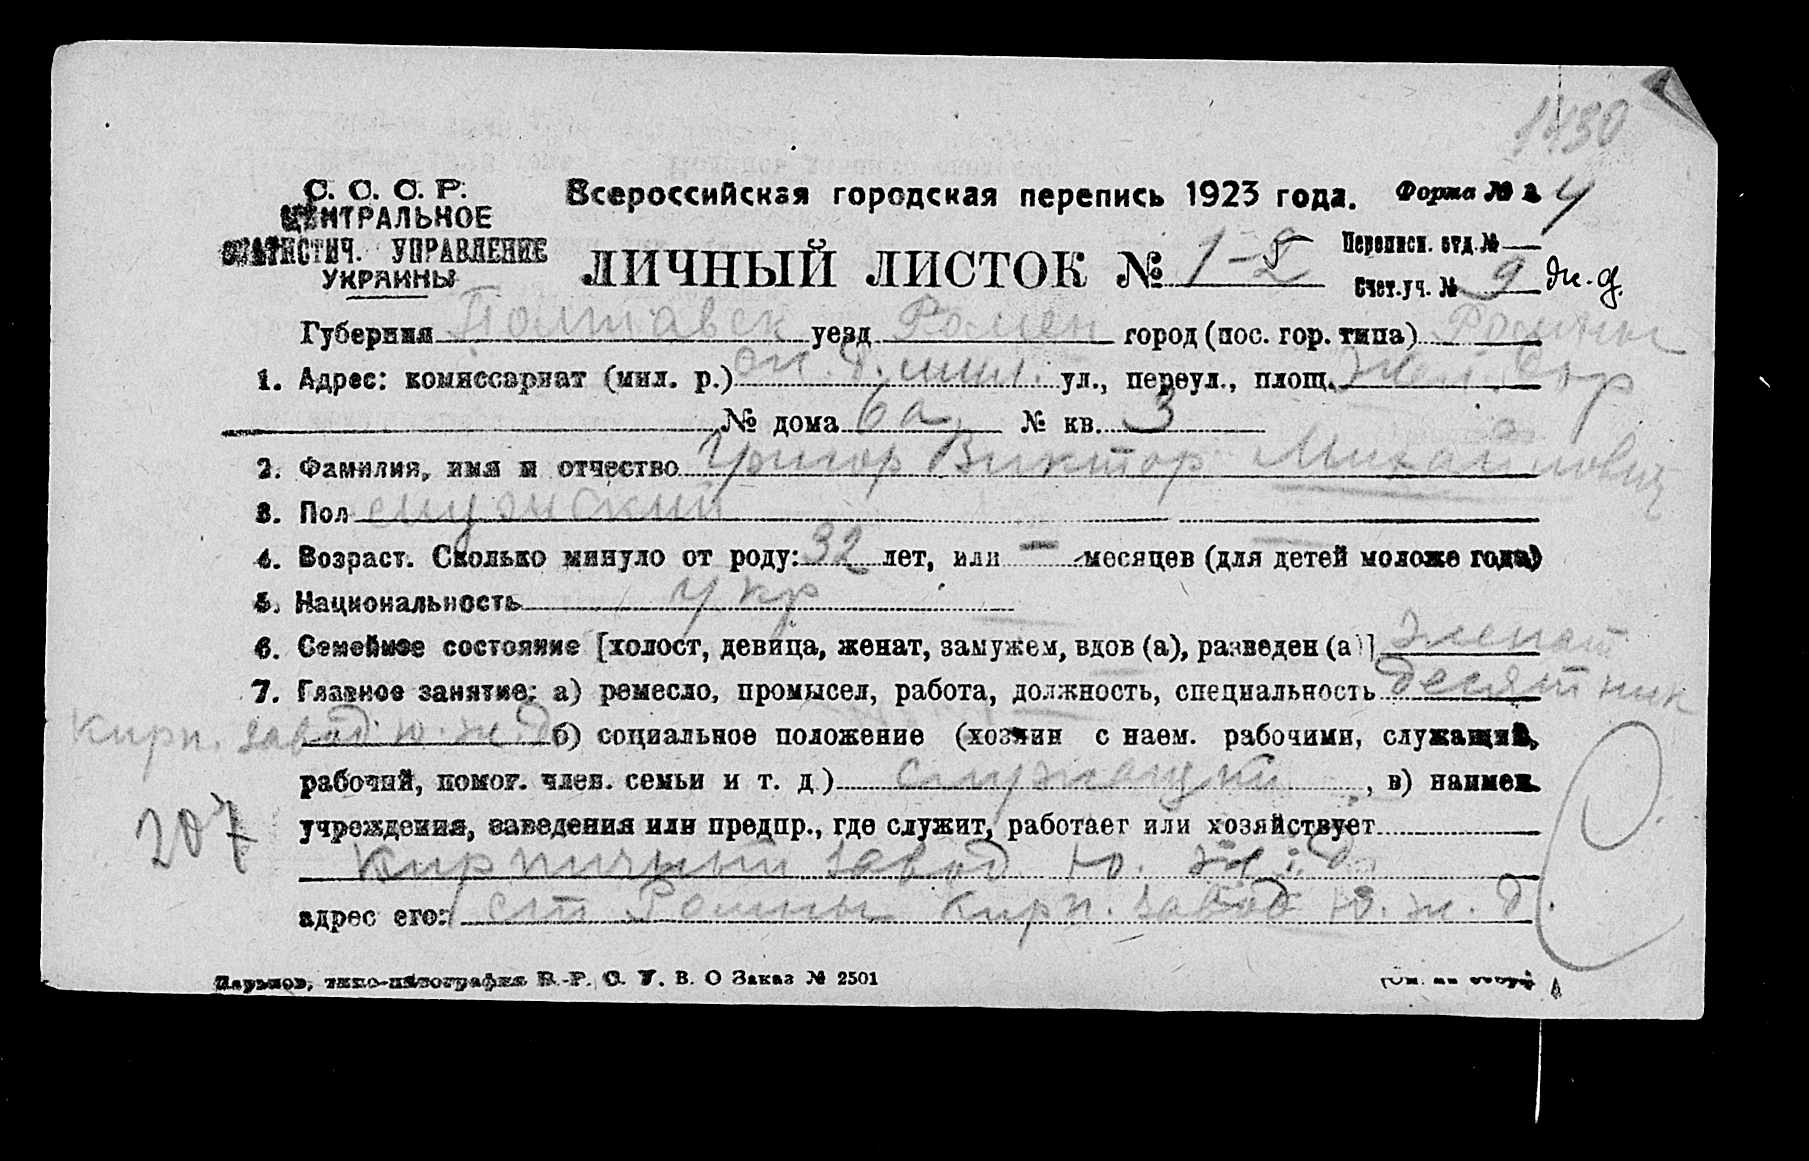 1430
С. С. С. Р.
ЦЕНТРАЛЬНОЕ
СТАТИСТИЧ. УПРАВЛЕНИЕ
УКРАИНЫ
Всероссийская городская перепись 1923 года. Форма № 2 4
ЛИЧНЫЙ ЛИСТОК № 1-5
Переписн. отд. № —
Счет. уч. № 9 ж.д.
Губерния Полтавск уезд Ромен город (пос. гор. типа) Ромны
1. Адрес: комиссариат (мил. р.) ж.д. мил. ул., переул., площ. Жел. дор
№ дома 6а № кв. 3
2. Фамилия, имя и отчество Виктор Михайлович
3. Пол мужской
4. Возраст. Сколько минуло от роду: 32 лет, или — месяцев (для детей моложе года)
5. Национальность укр
6. Семейное состояние [холост, девица, женат, замужем, вдов (а), разведен (а)] женат
7. Главное занятие: а) ремесло, промысел, работа, должность, специальность десятник
кирп. завод ю. ж. д. б) социальное положение (хозяин с наем. рабочими, служащий,
рабочий, помог. член. семьи и т. д) служащий, в) наимен.
учреждения, заведения или предпр., где служит, работает или хозяйствует
207
Кирпичный завод Ю. ж. д.
адрес его: ст Ромны кирп. завод Ю. ж. д.
Харьков, типо-литография В.-Р. С. У. В. О Заказ № 2501
(См. на обор.)